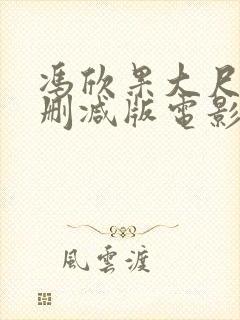 馮欣果大尺
刪減版電影
風雲渡